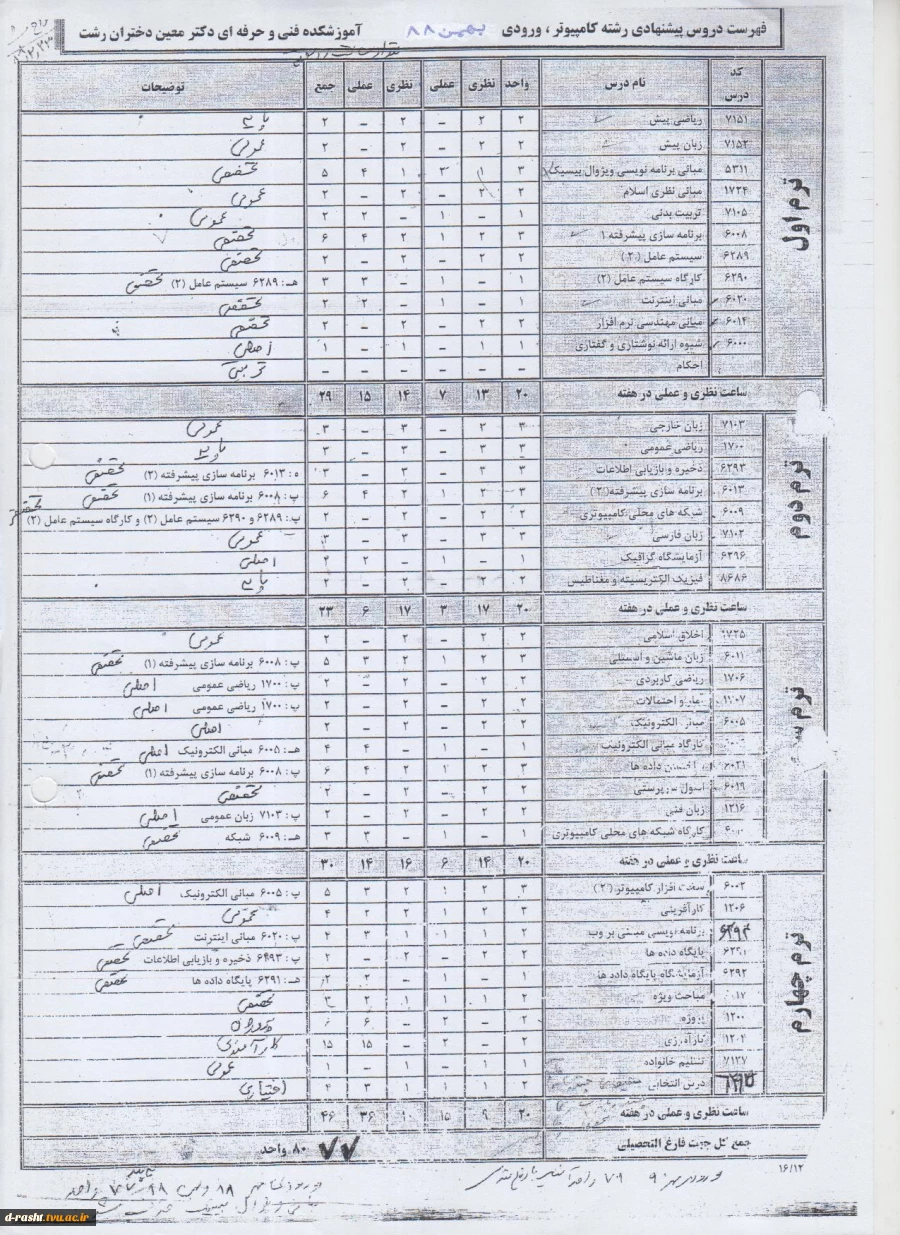 فهرست دروس پیشنهادی رشته کامپیوتر ، ورودی بهمن ۸۸ آموزشکده فنی و حرفه ای دکتر معین دختران رشت
کد درس نام درس واحد نظری عملی نظری عملی جمع توضیحات
ترم اول
۷۱۵۱ ریاضی پیش ۲ ۲ – ۲ – ۲ پایه
۷۱۵۲ زبان پیش ۲ ۲ – ۲ – ۲ عمومی
۵۳۱۱ مبانی برنامه نویسی ویژوال بیسیک ۳ ۱ ۴ ۵ تخصصی
۱۷۲۴ مبانی نظری اسلام ۲ ۲ – ۲ – ۲ عمومی
۷۱۰۵ تربیت بدنی ۱ – ۱ – ۲ ۲ عمومی
۶۰۰۸ برنامه سازی پیشرفته ۱ ۳ ۲ ۱ ۲ ۴ ۶ تخصصی
۶۲۸۹ سیستم عامل (۲) ۲ ۲ – ۲ – ۲ تخصصی
۶۲۹۰ کارگاه سیستم عامل (۲) ۱ – ۱ – ۳ ۳ هـ: ۶۲۸۹ سیستم عامل (۲) تخصصی
۶۰۲۰ مبانی اینترنت ۱ – ۱ – ۲ ۲ تخصصی
۶۰۱۴ مبانی مهندسی نرم افزار ۲ ۲ – ۲ – ۲ تخصصی
۶۰۰۰ شیوه ارائه نوشتاری و گفتاری ۱ ۱ – ۱ – ۱ اصلی
احکام – – – – – –
ساعت نظری و عملی در هفته ۲۰ ۱۳ ۷ ۱۴ ۱۵ ۲۹
ترم دوم
۷۱۰۳ زبان خارجی ۳ ۲ – ۳ – ۳ عمومی
۱۷۰۰ ریاضی عمومی ۳ ۳ – ۳ – ۳ پایه
۶۲۹۳ ذخیره و بازیابی اطلاعات ۳ ۳ – ۳ – ۳ ه: ۶۰۱۳ برنامه سازی پیشرفته (۲) تخصصی
۶۰۱۳ برنامه سازی پیشرفته (۲) ۳ ۲ ۱ ۲ ۴ ۶ پ: ۶۰۰۸ برنامه سازی پیشرفته (۱) تخصصی
۶۰۰۹ شبکه های محلی کامپیوتری ۲ ۲ – ۲ – ۲ پ: ۶۲۸۹ و ۶۲۹۰ سیستم عامل (۲) و کارگاه سیستم عامل (۲) تخصصی
۷۱۰۲ زبان فارسی ۳ ۳ – ۳ – ۳ عمومی
۶۲۹۶ آزمایشگاه گرافیک ۱ – ۱ – ۲ ۴ اصلی
۸۶۸۶ فیزیک الکتریسیته و مغناطیس ۲ ۲ – ۲ – ۲ پایه
ساعت نظری و عملی در هفته ۲۰ ۱۷ ۳ ۱۷ ۶ ۲۳
۱۷۲۵ اخلاق اسلامی ۲ ۲ – ۲ – ۲ عمومی
۶۰۱۱ زبان ماشین و اسمبلی ۳ ۲ ۱ ۲ ۳ ۵ پ: ۶۰۰۸ برنامه سازی پیشرفته (۱) تخصصی
۱۷۰۶ ریاضی کاربردی ۲ ۲ – ۲ – ۲ پ: ۱۷۰۰ ریاضی عمومی اصلی
آمار و احتمالات ۲ ۲ – ۲ – ۲ پ: ۱۷۰۰ ریاضی عمومی اصلی
۶۰۰۵ مبانی الکترونیک ۲ ۲ – ۲ – ۲ اصلی
کارگاه مبانی الکترونیک ۱ – ۱ – ۴ ۴ هـ: ۶۰۰۵ مبانی الکترونیک اصلی
۶۰۲۱ داده ها ۳ ۲ ۱ ۲ ۴ ۶ پ: ۶۰۰۸ برنامه سازی پیشرفته (۱) تخصصی
۶۰۱۹ اصول سرپرستی ۲ ۲ – ۲ – ۲ تخصصی
۱۲۱۶ زبان فنی ۲ ۲ – ۲ – ۲ پ: ۷۱۰۳ زبان عمومی اصلی
کارگاه شبکه های محلی کامپیوتری ۱ – ۱ – ۳ ۳ هـ: ۶۰۰۹ شبکه تخصصی
ساعت نظری و عملی در هفته ۲۰ ۱۴ ۶ ۱۶ ۱۴ ۳۰
ترم چهارم
۶۰۰۲ سخت افزار کامپیوتر (۲) ۳ ۲ ۱ ۲ ۳ ۵ پ: ۶۰۰۵ مبانی الکترونیک اصلی
۱۲۰۶ کارآفرینی ۳ ۲ ۱ ۲ ۲ ۴ عمومی
برنامه نویسی مبتنی بر وب ۲ ۱ ۱ ۱ ۳ ۴ پ: ۶۰۲۰ مبانی اینترنت تخصصی
پایگاه داده ها ۲ ۲ – ۲ – ۲ پ: ۶۲۹۳ ذخیره و بازیابی اطلاعات تخصصی
۶۲۹۲ آزمایشگاه پایگاه داده ها ۱ – ۱ – ۲ ۲ هـ: ۶۲۹۱ پایگاه داده ها تخصصی
مباحث ویژه ۲ ۱ ۱ ۱ ۲ ۳ تخصصی
۱۲۰۰ پروژه ۲ – ۲ – ۶ ۶
۱۲۰۴ کارآموزی ۲ – ۲ – ۱۵ ۱۵ کارآموزی
۷۱۲۷ تنظیم خانواده ۱ ۱ – ۱ – ۱ عمومی
درس انتخابی ۲ ۱ ۱ ۱ ۳ ۴ اختیاری
ساعت نظری و عملی در هفته ۲۰ ۹ ۱۰ ۳۶ ۴۶
جمع کل جهت فارغ التحصیلی ۷۷ ۸۰ واحد
۱۶/۱۲
d-rasht.tvu.ac.ir